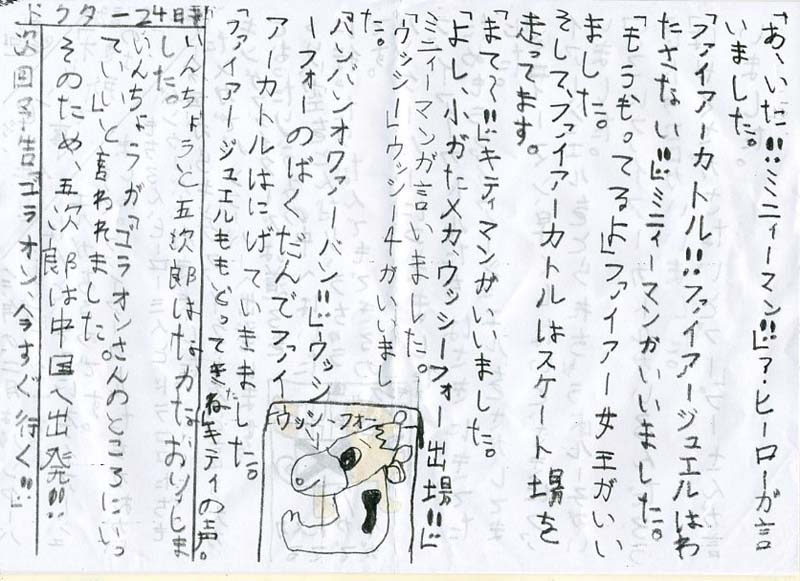 「あ、いた!!ミニィーマン!!」ア・ヒーローが言
いました。
「ファイアーカトル!!ファイアージュエルはわ
たさない!!」ミニィーマンがいいました。
「もうもってるよ」ファイアー女王がいい
ました。
そして、ファイアーカトルはスケート場を
走ってます。
「まて〜!!」キティマンがいいました。
「よし、小がたメカ、ウッシーフォー出場!!」
ミニィーマンが言いました。
「ウッシー」ウッシー4がいいまし
た。
「バンバンオワァーバン!!」ウッシ
ーフォーのばくだんでファイ
アーカトルはにげていきました。
「ファイアージュエルももどってきたね」キティの声。
ウッシーフォー
ドクター24日
いんちょうと五次郎はなかなおりしま
した。
いんちょうが「ゴラオンさんのところにいっ
ていい」と言われました。
そのため、五次郎は中国へ出発!!
次回予告「ゴラオン、今すぐ行く!!」